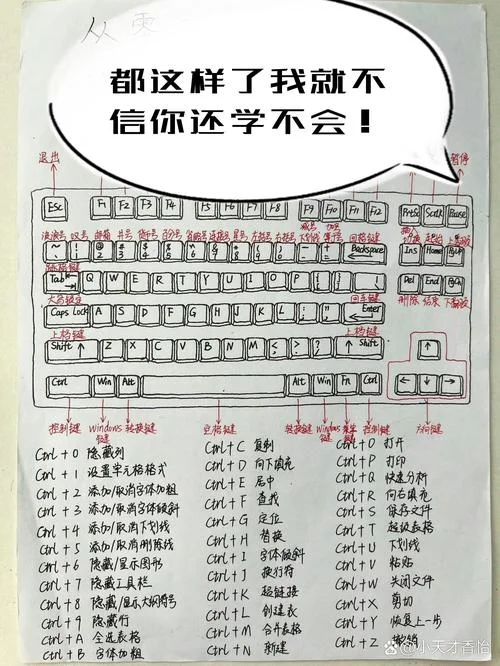 从零
都这样了我就不
信你还学不会！
退出
暂停
Esc F1 F2 F3 F4 F5 F6 F7 F8 F9 F10 F11 F12 PrtSc ScrLk Pause
波浪号 叹号 邮箱 井号 货币号 百分号 省略号 连接号 星号 左括号 右括号 减号 下划线 加号 等号 回格键
插入 切换 起始 上翻页
~ ! @ 2 # 3 $ 4 Backspace Ins Home PgUp
Tab Q W E R T Y U I O P Del End PgDn
大写锁定 回车键 删除 结束 下翻页
Caps Lock A S D F G H J K L Enter
上档键 上档键
Shift Z X C V B N M Shift ↑
Ctrl Win Alt Alt Win Fn Ctrl ← ↓ →
控制键 Windows键 转换键 空格键 转换键 Windows键 菜单键 控制键 方向键
Ctrl + 0 隐藏列
Ctrl + 1 设置单元格格式
Ctrl + 2 添加/取消字体加粗
Ctrl + 3 添加/取消字体倾斜
Ctrl + 4 添加/取消下划线
Ctrl + 5 添加/取消删除线
Ctrl + 6 隐藏/显示图形
Ctrl + 7 隐藏工具栏
Ctrl + 8 隐藏/显示大纲符号
Ctrl + 9 隐藏行
Ctrl + A 全选表格
Ctrl + B 字体加粗
Ctrl + C 复制
Ctrl + D 向下填充
Ctrl + E 居中
Ctrl + F 查找
Ctrl + G 定位
Ctrl + H 替换
Ctrl + I 字体倾斜
Ctrl + J 换行符
Ctrl + K 超链接
Ctrl + L 创建表
Ctrl + M 合并表格
Ctrl + N 新建
Ctrl + O 打开
Ctrl + P 打印
Ctrl + Q 快速分析
Ctrl + R 向右填充
Ctrl + S 保存文件
Ctrl + T 超级表格
Ctrl + U 下划线
Ctrl + V 粘贴
Ctrl + W 关闭文件
Ctrl + X 剪切
Ctrl + Y 恢复上一步
Ctrl + Z 撤销
@小天才香怡